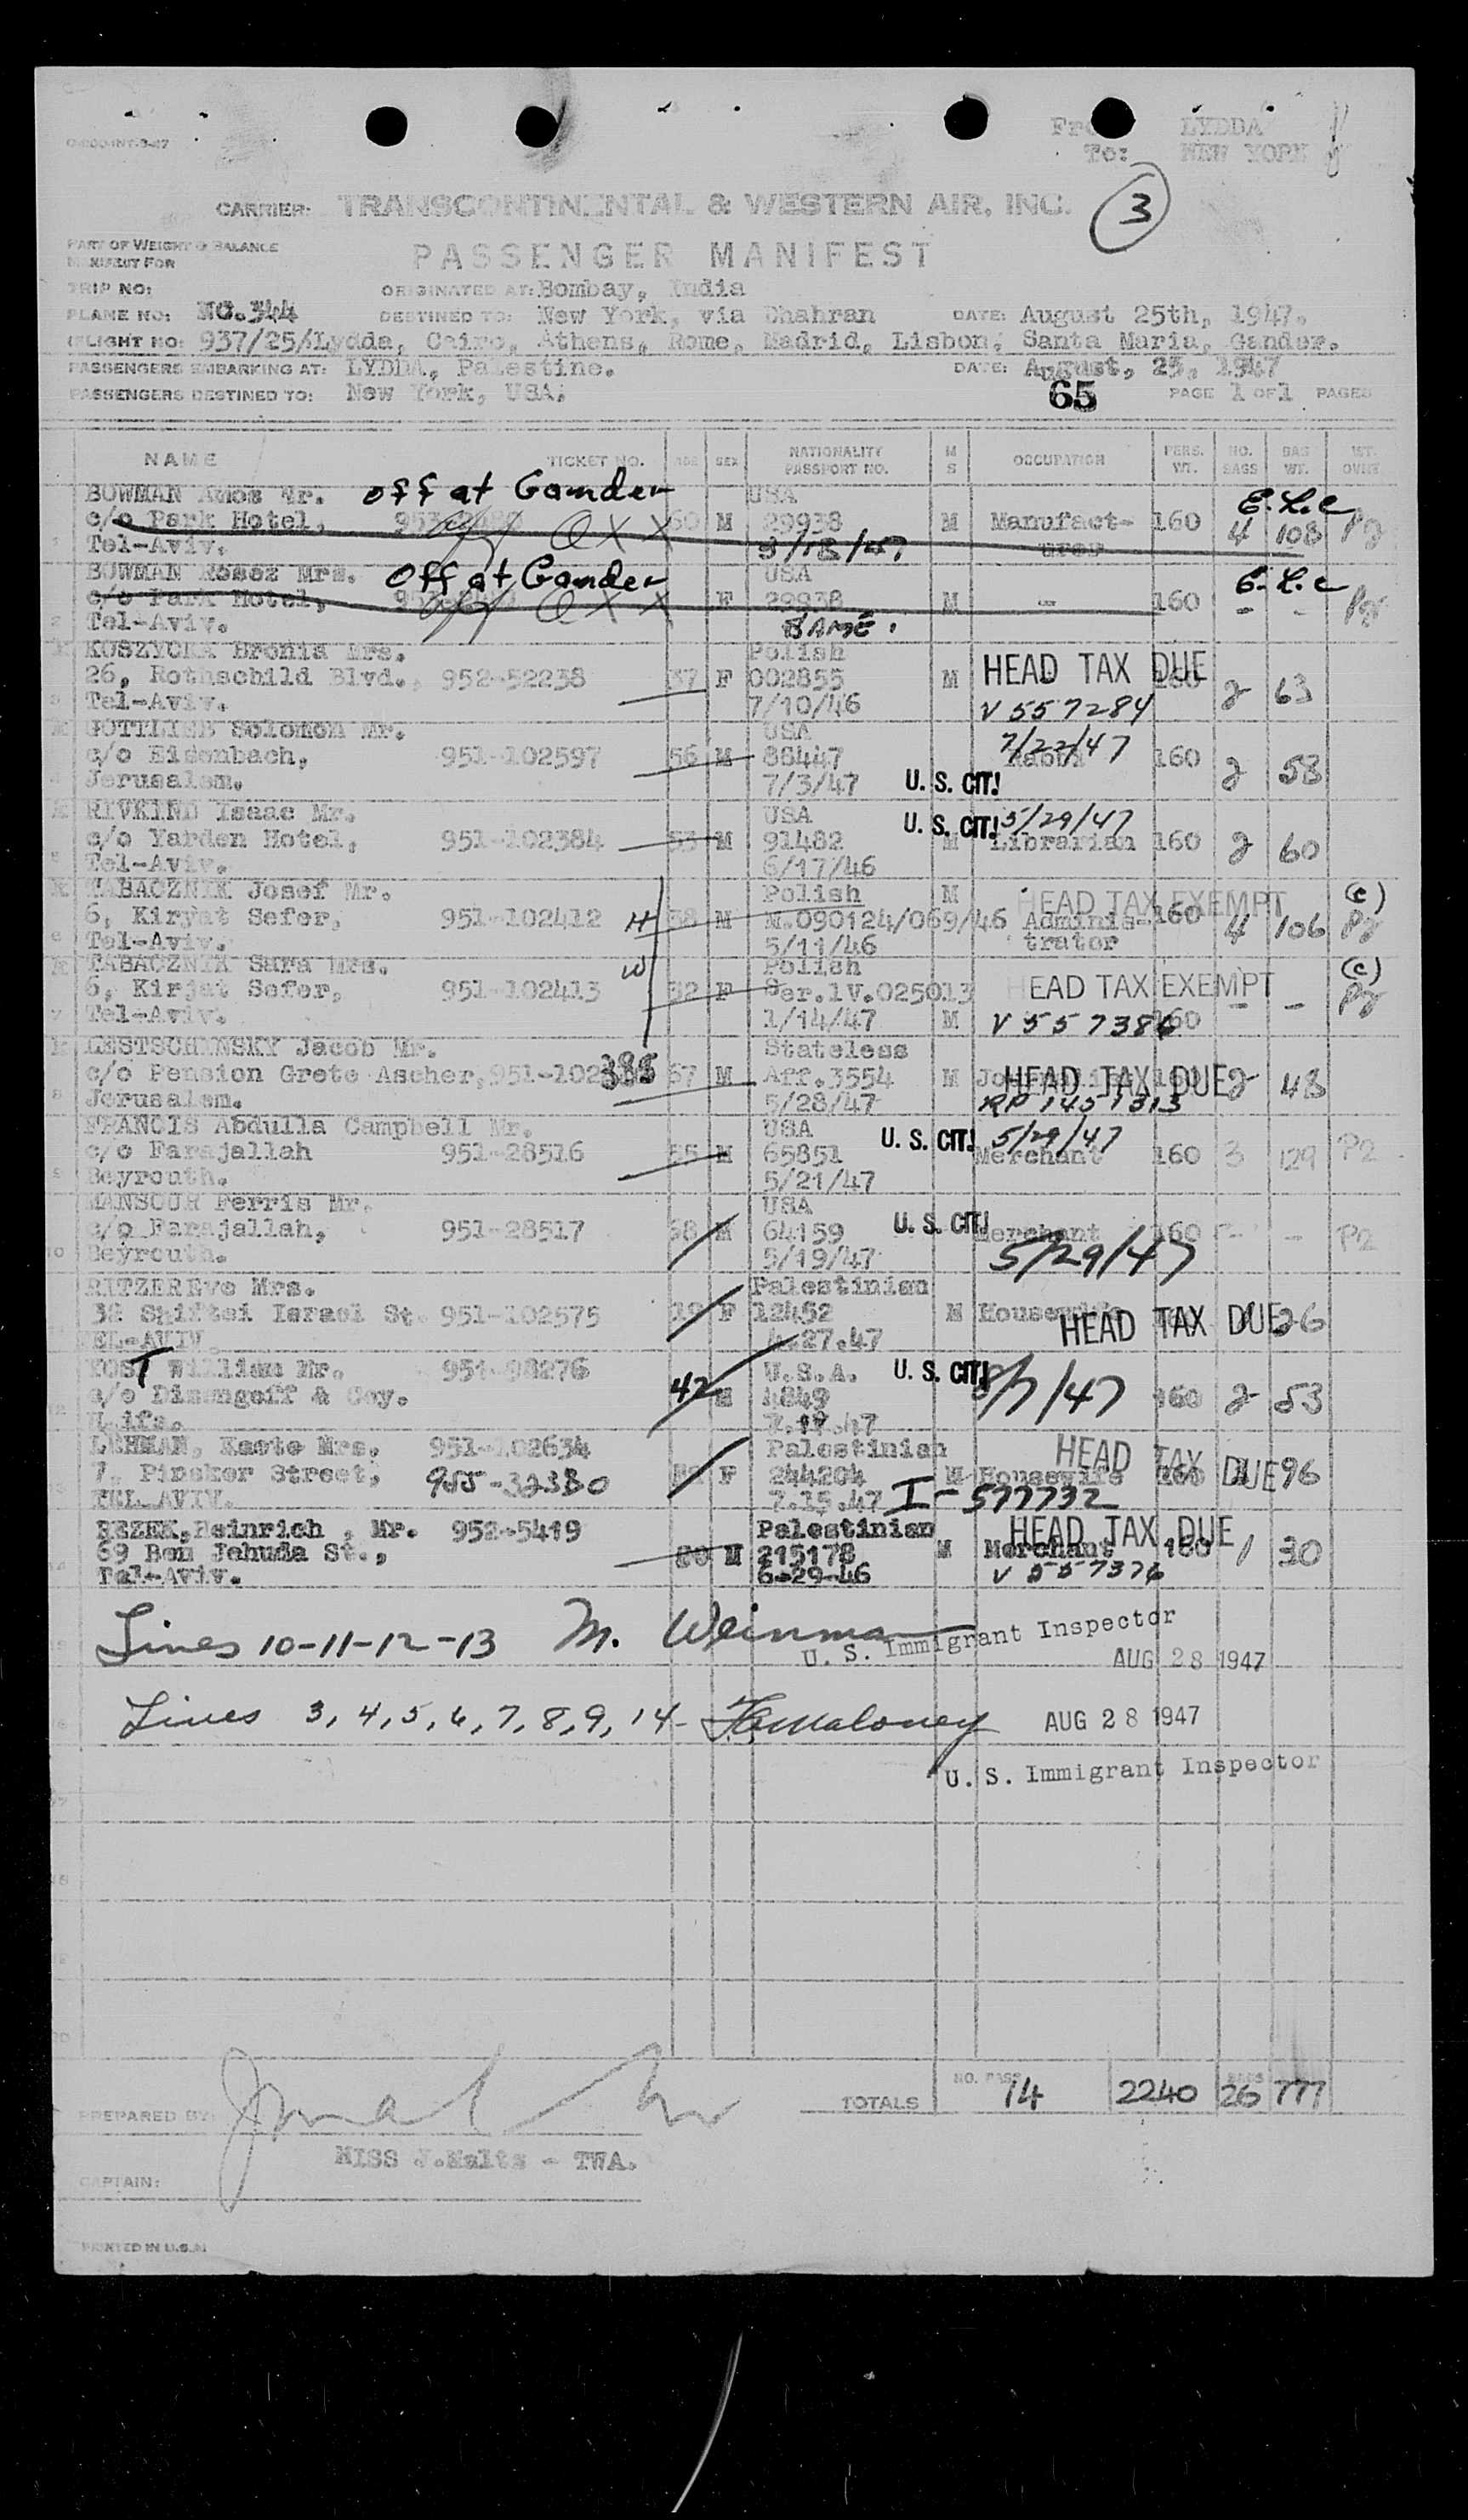 O-200-INT-3-47
From: LYDDA
To: NEW YORK
CARRIER: TRANSCONTINENTAL & WESTERN AIR, INC.
3
PART OF WEIGHT & BALANCE
MANIFEST FOR
PASSENGER MANIFEST
TRIP NO:
ORIGINATED AT: Bombay, India
PLANE NO: NO.344
DESTINED TO: New York, via Dhahran
DATE: August 25th, 1947.
FLIGHT NO: 937/25/Lydda, Cairo, Athens, Rome, Madrid, Lisbon, Santa Maria, Gander.
PASSENGERS EMBARKING AT: LYDDA, Palestine.
DATE: August, 25, 1947
PASSENGERS DESTINED TO: New York, USA.
65
PAGE 1 OF 1 PAGES
NAME TICKET NO. AGE SEX NATIONALITY PASSPORT NO. M S OCCUPATION PERS. WT. NO. BAGS BAG WT. WT. OVER
BOWMAN Amos Mr. off at Gander USA E.L.C
c/o Park Hotel, 60 M 29938 M Manufact- 160 4 108
1 Tel-Aviv. 3/18/47 urer
BOWMAN Mrs. off at Gander USA E.L.C
c/o Park Hotel, F 29938 M - 160 - -
2 Tel-Aviv. SAME.
KUSZYCKA Bronia Mrs. Polish HEAD TAX DUE
26, Rothschild Blvd., 952-52238 37 F 002855 M 160 2 63
3 Tel-Aviv. 7/10/46 V 557284
GOTTLIEB Solomon Mr. USA 7/22/47
c/o Eisenbach, 951-102597 56 M 88447 Rabbi 160 2 58
4 Jerusalem. 7/3/47 U. S. CIT!
RIVKIND Isaac Mr. USA U. S. CIT! 5/29/47
c/o Yarden Hotel, 951-102384 53 M 91482 M Librarian 160 2 60
5 Tel-Aviv. 6/17/46
TABACZNIK Josef Mr. Polish M HEAD TAX EXEMPT (c)
6, Kiryat Sefer, 951-102412 H 38 M N.090124/069/46 Adminis- 160 4 106
6 Tel-Aviv. 5/11/46 trator
TABACZNIK Sara Mrs. W Polish HEAD TAX EXEMPT (c)
6, Kirjat Sefer, 951-102413 32 F Ser.1V.025013 - -
7 Tel-Aviv. 1/14/47 M V 557386 160
LESTSCHINSKY Jacob Mr. Stateless
c/o Pension Grete Ascher, 951-102385 67 M Aff.3554 M Journalist HEAD TAX DUE 160 2 48
8 Jerusalem. 5/28/47 RP 1451313
FRANCIS Abdulla Campbell Mr. USA U. S. CIT! 5/29/47
c/o Farajallah 951-28516 55 M 65851 Merchant 160 3 129 P2
9 Beyrouth. 5/21/47
MANSOUR Ferris Mr. USA U. S. CIT!
c/o Farajallah, 951-28517 58 M 64159 Merchant 160 - - P2
10 Beyrouth. 5/19/47 5/29/47
RITZER Eve Mrs. Palestinian
32 Shiftei Israel St. 951-102575 19 F 12452 M Housewife HEAD TAX DUE 26
TEL-AVIV 4.27.47
YOST William Mr. 951-98276 U.S.A. U. S. CIT!
c/o Dizengoff & Coy. 42 M 4849 8/7/47 160 2 53
Haifa. 7.17.47
LEHMAN, Kaete Mrs. 951-102634 Palestinian HEAD TAX DUE
7, Pinsker Street, 955-32380 F 244204 M Housewife 160 96
TEL AVIV. 7.15.47 I-577732
BEZEK, Heinrich, Mr. 952-5419 Palestinian HEAD TAX DUE
69 Ben Jehuda St., M 215178 M Merchant 160 1 30
Tel-Aviv. 6-29-46 V 557376
Lines 10-11-12-13 M. Weinman
U. S. Immigrant Inspector
AUG 28 1947
Lines 3, 4, 5, 6, 7, 8, 9, 14- Maloney AUG 28 1947
U. S. Immigrant Inspector
TOTALS NO. PASS 14 2240 BAGS 26 777
PREPARED BY:
MISS J.Malts - TWA.
CAPTAIN:
PRINTED IN U.S.A.